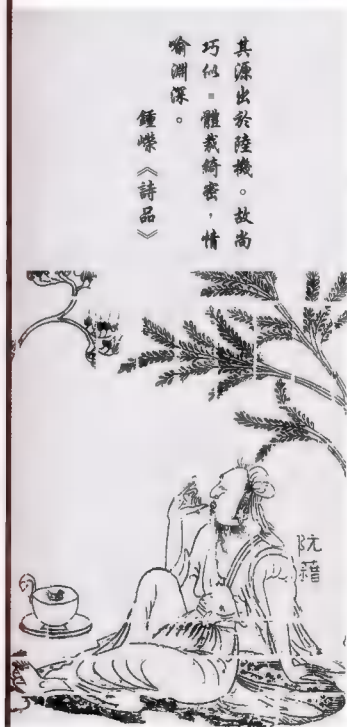 其源出於陸機。故尚
巧似。體裁綺密,情
喻淵深。
鍾嶸《詩品》
阮籍